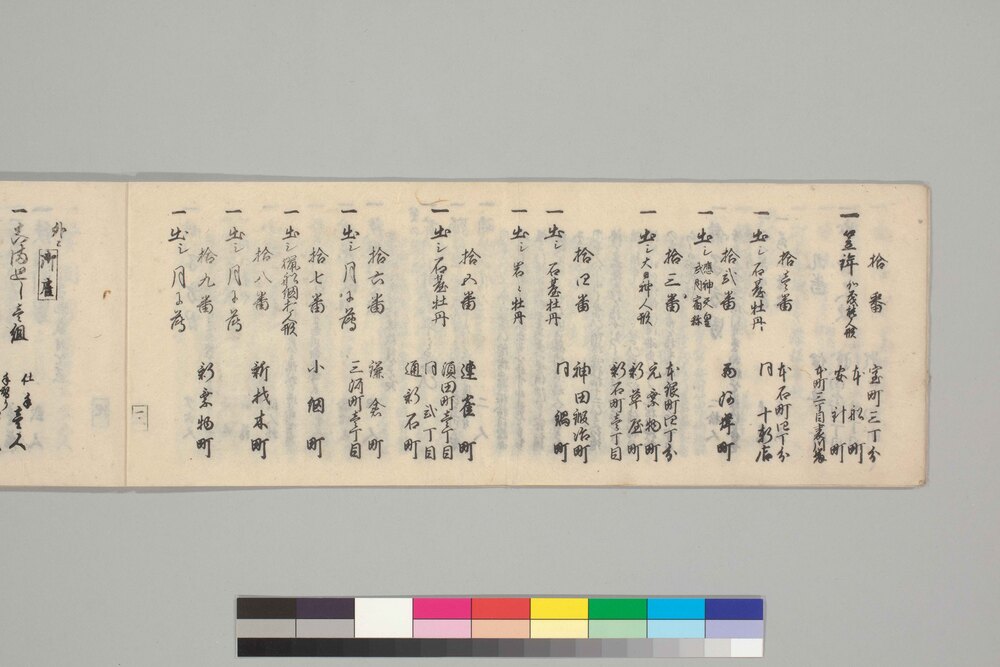 拾番
室町三丁分
本船町
一 笠鉾
安針町
本町三丁目
拾壱番
本石町四丁分
一 出し石台牡丹
同 十軒店
拾弐番
西河岸町
一 出し 應神天皇 武内宿祢
拾三番
本銀町四丁分
元乗物町
一 出し大己神人形
新草屋町
新石町壱丁目
拾四番
神田鍛冶町
一 出し 石台牡丹
同 鍋町
一 出し 岩ニ牡丹
拾五番
連雀町
須田町壱丁目
一 出し石台牡丹
同 弐丁目
通新石町
拾六番
鎌倉町
一 出し月に薄
三河町壱丁目
拾七番
小網町
一 出し 人形
拾八番
新材木町
一 出し月に薄
拾九番
新乗物町
一 出し月に薄
外ニ
御雇
一 壱組
仕手 壱人